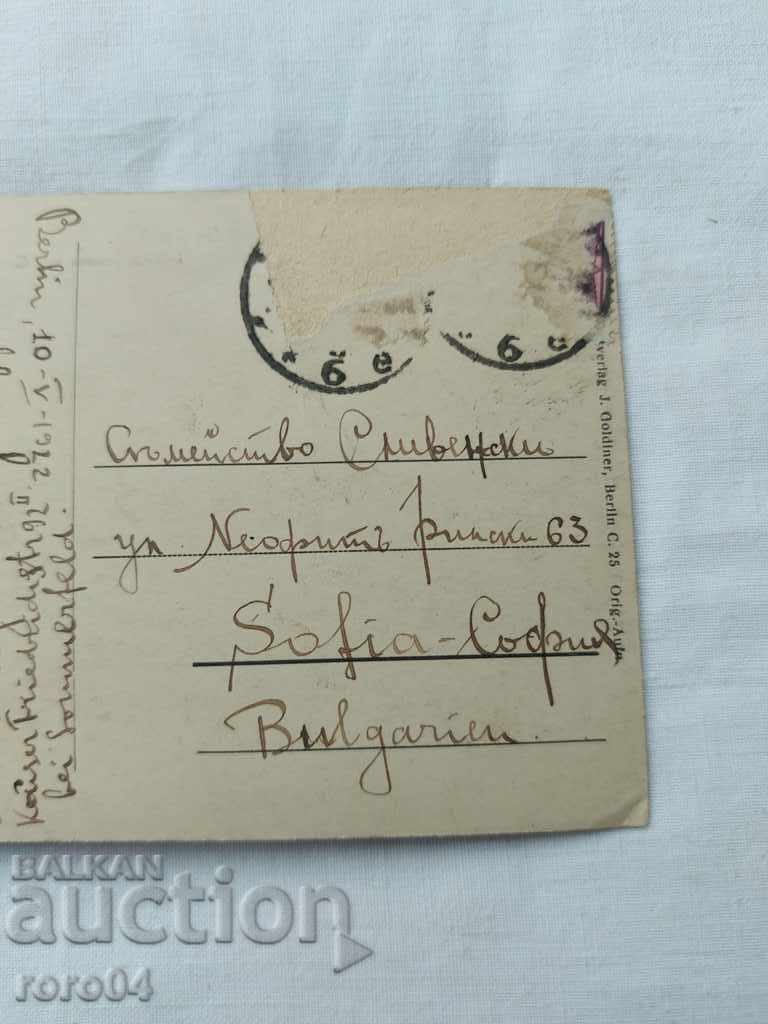 Berlin, 10-V-1922
Kaiser Friedrichstr 92 II
bei Sommerfeld.
б с
б с
Съмейство Сливенски
ул Неофитъ Рилски 63
Sofia-София
Bulgarien.
verlag J. Goldiner, Berlin C. 25 Orig.-Aufn
BALKAN
auction
roro04